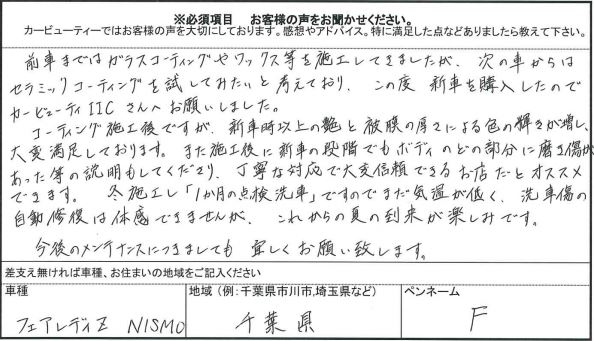 ※必須項目　お客様の声をお聞かせください。
カービューティーではお客様の声を大切にしております。感想やアドバイス、特に満足した点などありましたら教えて下さい。
前車まではガラスコーティングやワックス等を施工してきましたが、次の車からは
セラミックコーティングを試してみたいと考えており、この度 新車を購入したので
カービューティIICさんへお願いしました。
コーティング施工後ですが、新車時以上の艶と被膜の厚さによる色の輝きが増し、
大変満足しております。また施工後に新車の段階でもボディのどの部分に磨き傷が
あった等の説明もしてくださり、丁寧な対応で大変信頼できるお店だとオススメ
できます。　冬施工し「1か月の点検洗車」ですのでまだ気温が低く、洗車傷の
自動修復は体感できませんが、これからの夏の到来が楽しみです。
今後のメンテナンスにつきましても 宜しくお願い致します。
差支え無ければ車種、お住まいの地域をご記入ください
車種　地域 (例:千葉県市川市,埼玉県など)　ペンネーム
フェアレディZ NISMO　千葉県　F